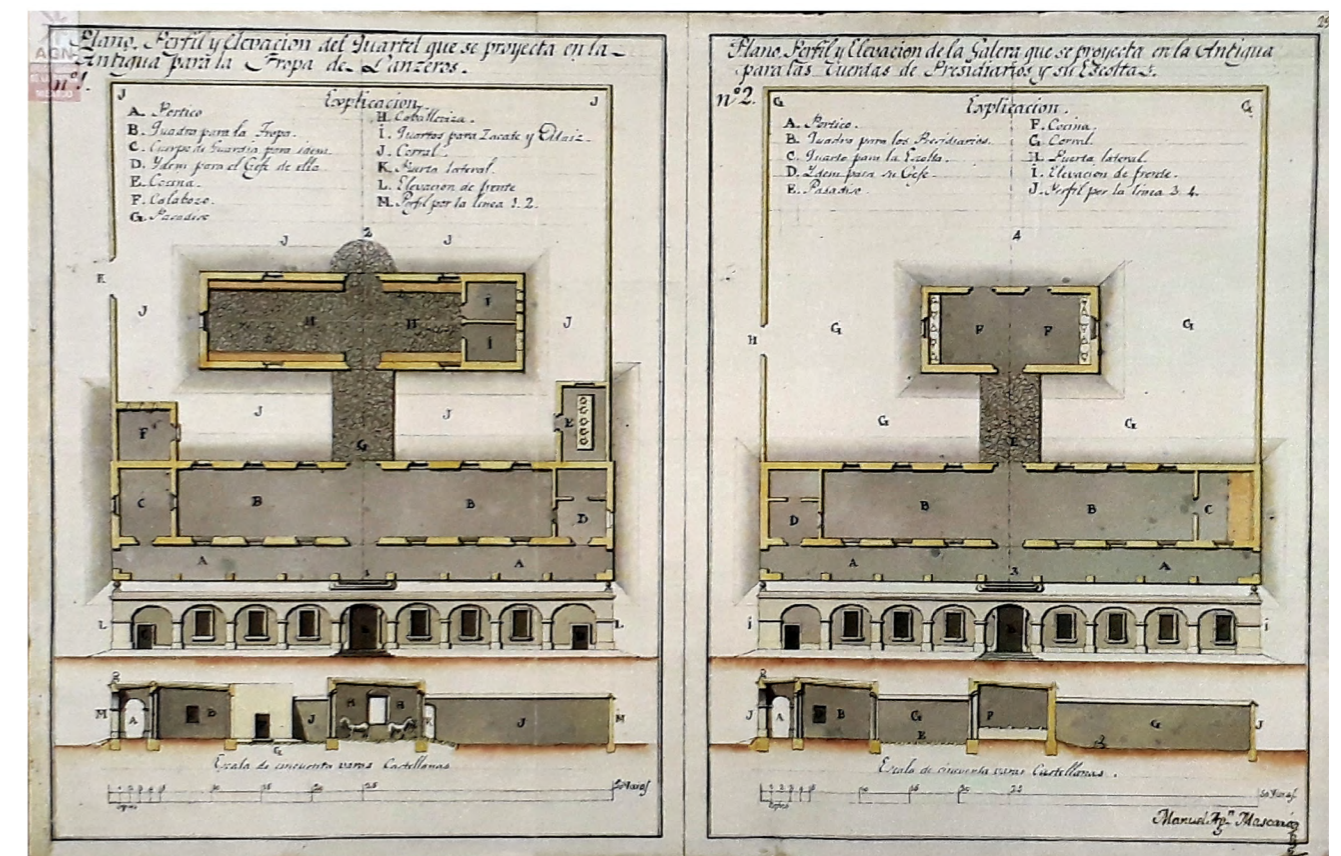 29
AGN
MÉXICO
Plano, Perfil y Elevacion del Quartel que se proyecta en la
Antigua para la Tropa de Lanzeros.
nº1.
Explicacion.
A. Portico
B. Quadra para la Tropa.
C. Cuerpo de Guardia para idem
D. Ydem para el Gefe de ella
E. Cocina.
F. Calabozo.
G. Pasadizo
H. Caballeriza.
I. Quartos para Zacate y Maiz.
J. Corral.
K. Puerta lateral.
L. Elevacion de frente
M. Perfil por la linea 1.2.
J J
J 2 J
K
J H H I J
I
J J
F E
G
C B B D
A A
1
L C A D L
M A B J H H K J M
G
Escala de cincuenta varas Castellanas
10 15 20 25 50 Varas
Plano, Perfil y Elevacion de la Galera que se proyecta en la Antigua
para las Cuerdas de Presidiarios y su Escolta.
nº2.
Explicacion.
A. Portico.
B. Quadra para los Presidiarios.
C. Quarto para la Escolta.
D. Ydem para su Gefe.
E. Pasadizo.
F. Cocina.
G. Corral.
H. Puerta lateral.
I. Elevacion de frente.
J. Perfil por la linea 3.4.
G G
4
H G F F G
G G
E
D B B C
A A
3
I A I
J A B G F G J
E
Escala de cincuenta varas Castellanas.
10 15 20 25 50 Varas
Manuel Agn Mascaró